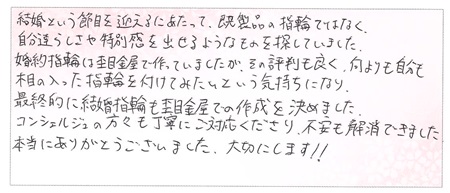 結婚という節目を迎えるにあたって、既製品の指輪ではなく、
自分達らしさや特別感を出せるようなものを探していました。
婚約指輪は杢目金屋で作っていましたが、その評判も良く、何よりも自分も
木目の入った指輪を付けてみたいという気持ちになり、
最終的に結婚指輪も杢目金屋での作成を決めました。
コンシェルジュの方々も丁寧にご対応くださり、不安も解消できました
本当にありがとうございました。大切にします!!